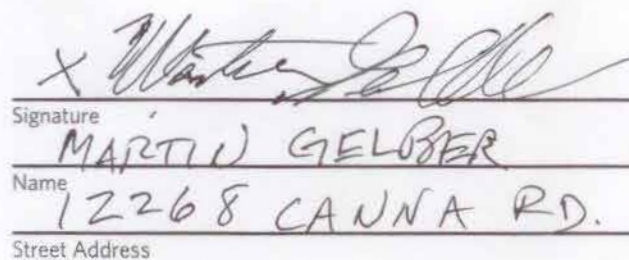 X Martin Gelber
Signature
MARTIN GELBER
Name
12268 CANNA RD.
Street Address